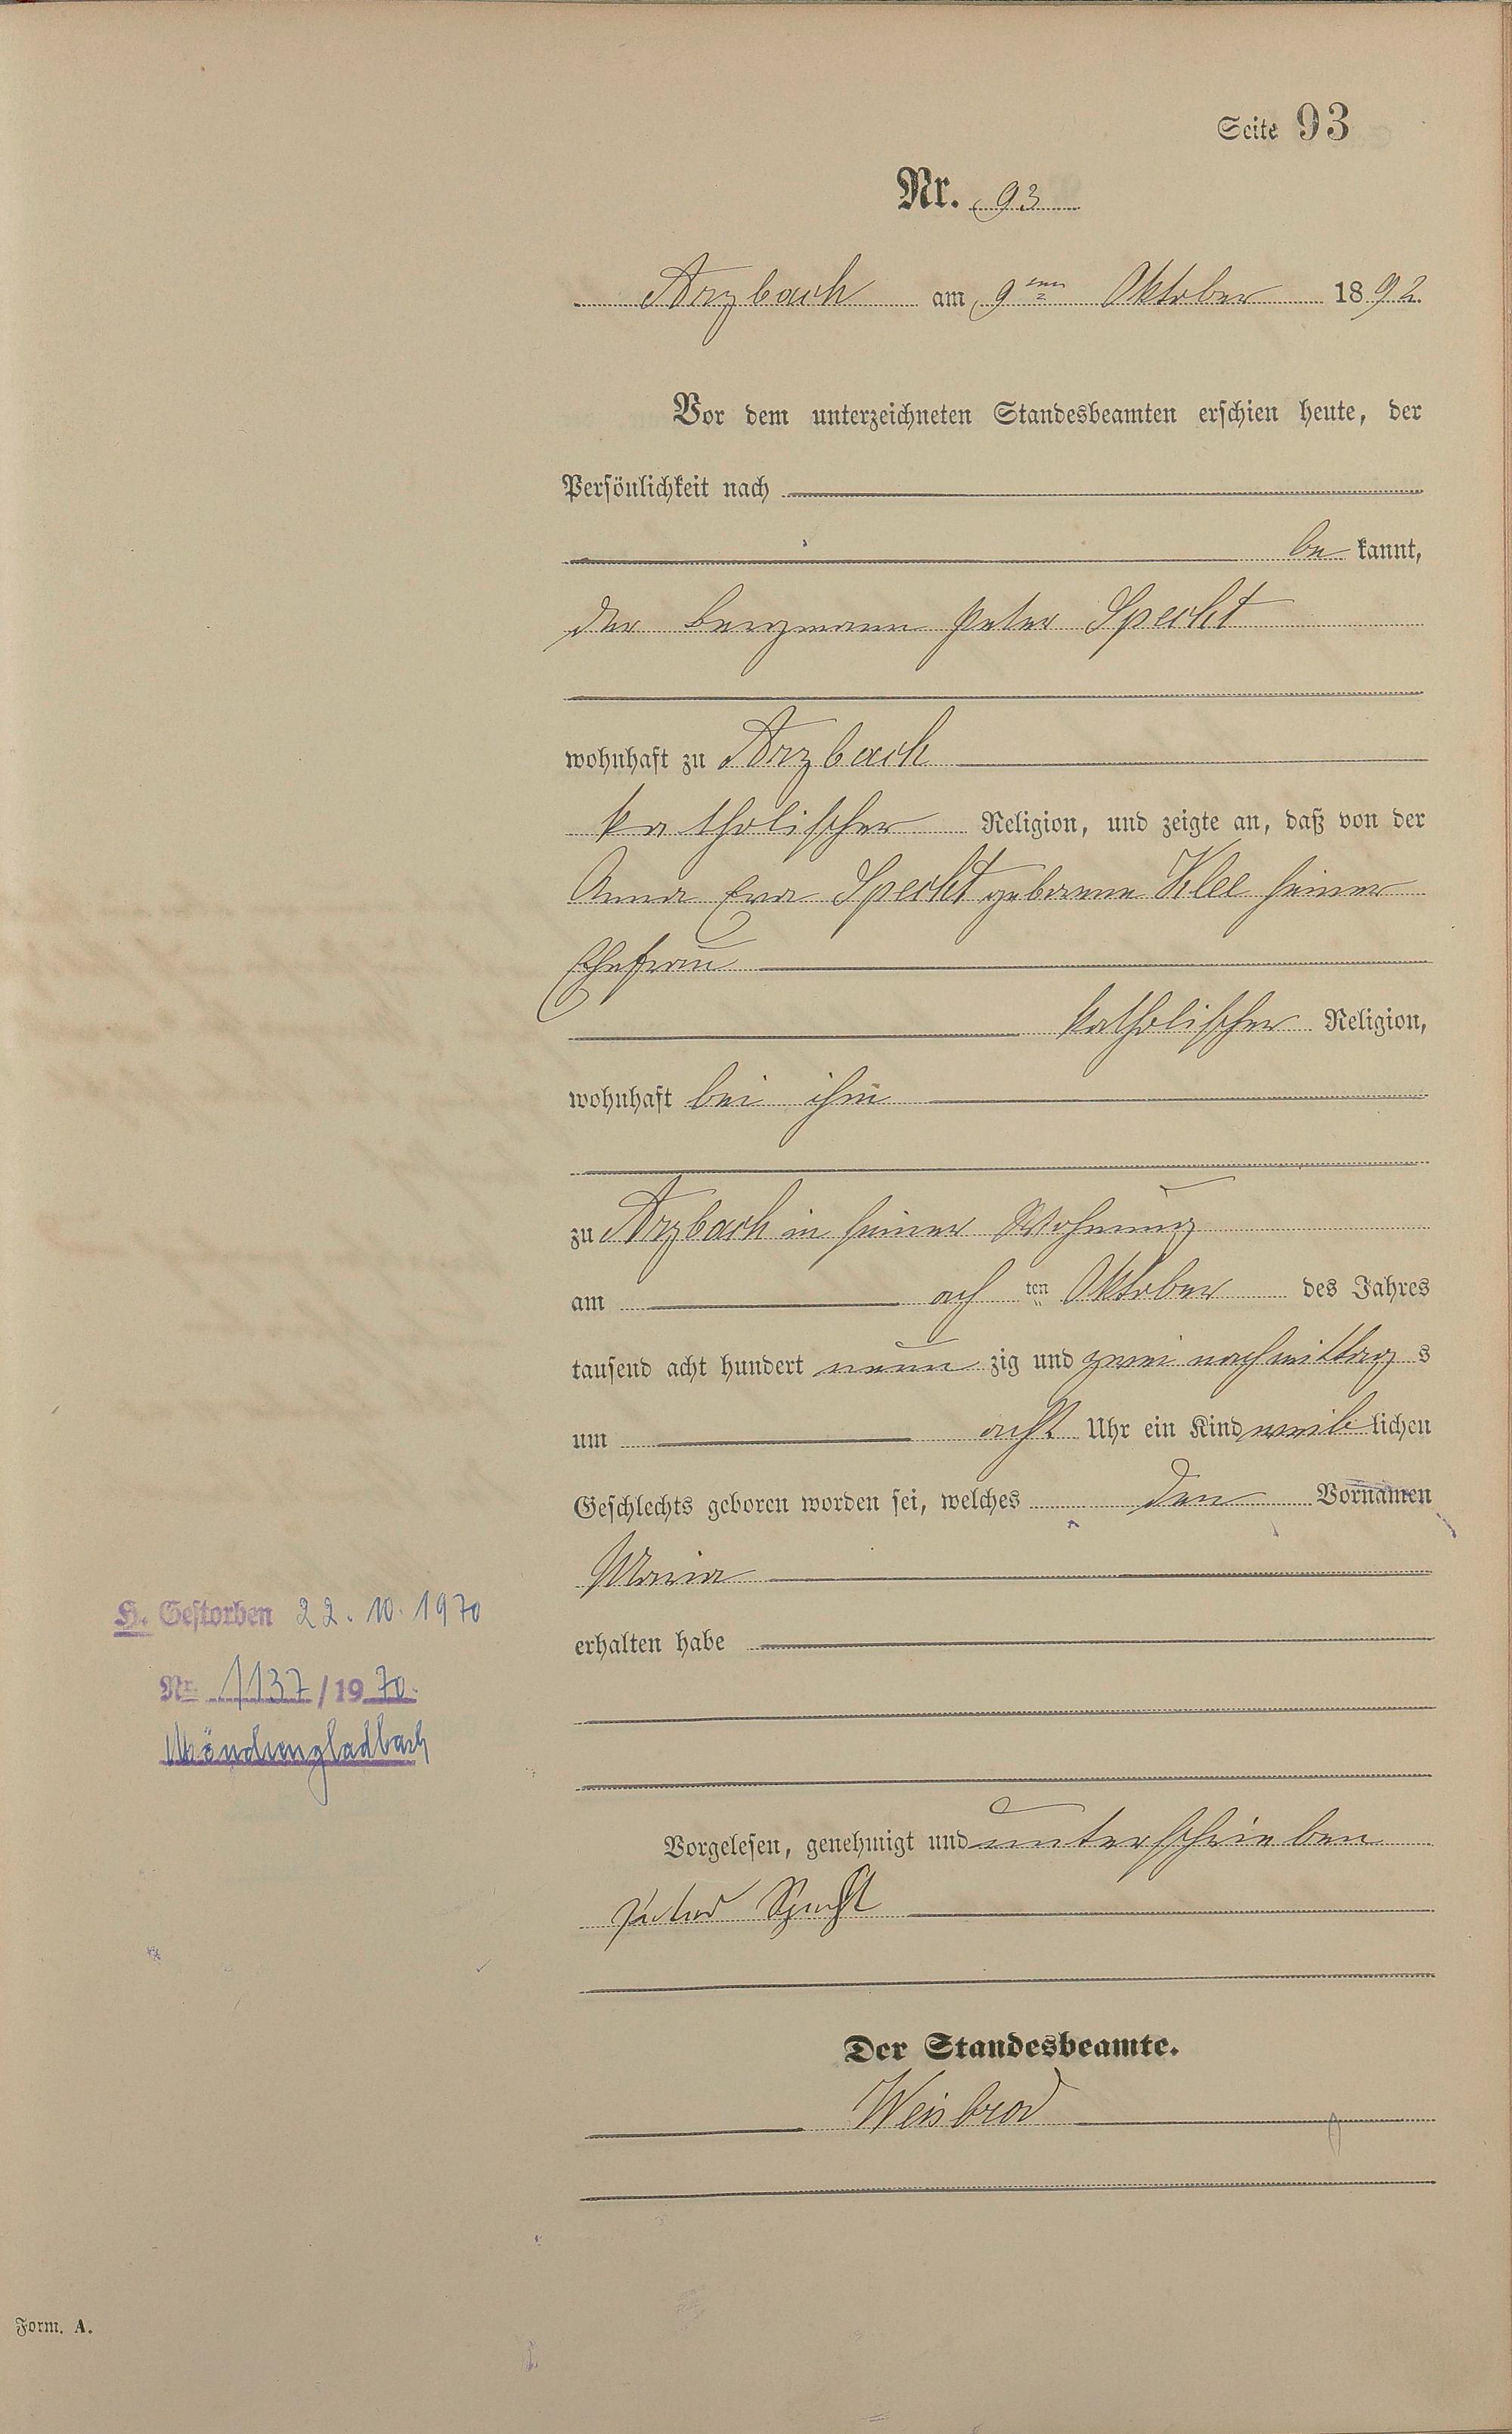 Seite 93
Nr. 93
Arzbach am 9ten Oktober 1892.
Vor dem unterzeichneten Standesbeamten erschien heute, der
Persönlichkeit nach
be kannt,
der Bergmann Peter Specht
wohnhaft zu Arzbach
katholischer Religion, und zeigte an, daß von der
Anna Eva Specht geborene Klee seiner
Ehefrau
katholischer Religion,
wohnhaft bei ihm
zu Arzbach in seiner Wohnung
am ach ten Oktober des Jahres
tausend acht hundert neun zig und zwei nachmittag s
um acht Uhr ein Kind weib lichen
Geschlechts geboren worden sei, welches den Vornamen
Maria
erhalten habe
H. Gestorben 22.10.1970
Nr. 1137/1970.
Mönchengladbach
Vorgelesen, genehmigt und unterschrieben
Peter Specht
Der Standesbeamte.
Weisbrod
Form. A.